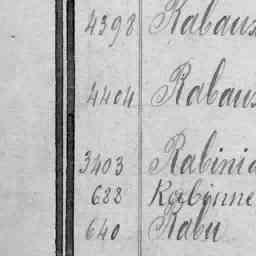 4398 Rabaux
4404 Rabaux
3403 Rabinia
688 Rabinne
640 Rabu